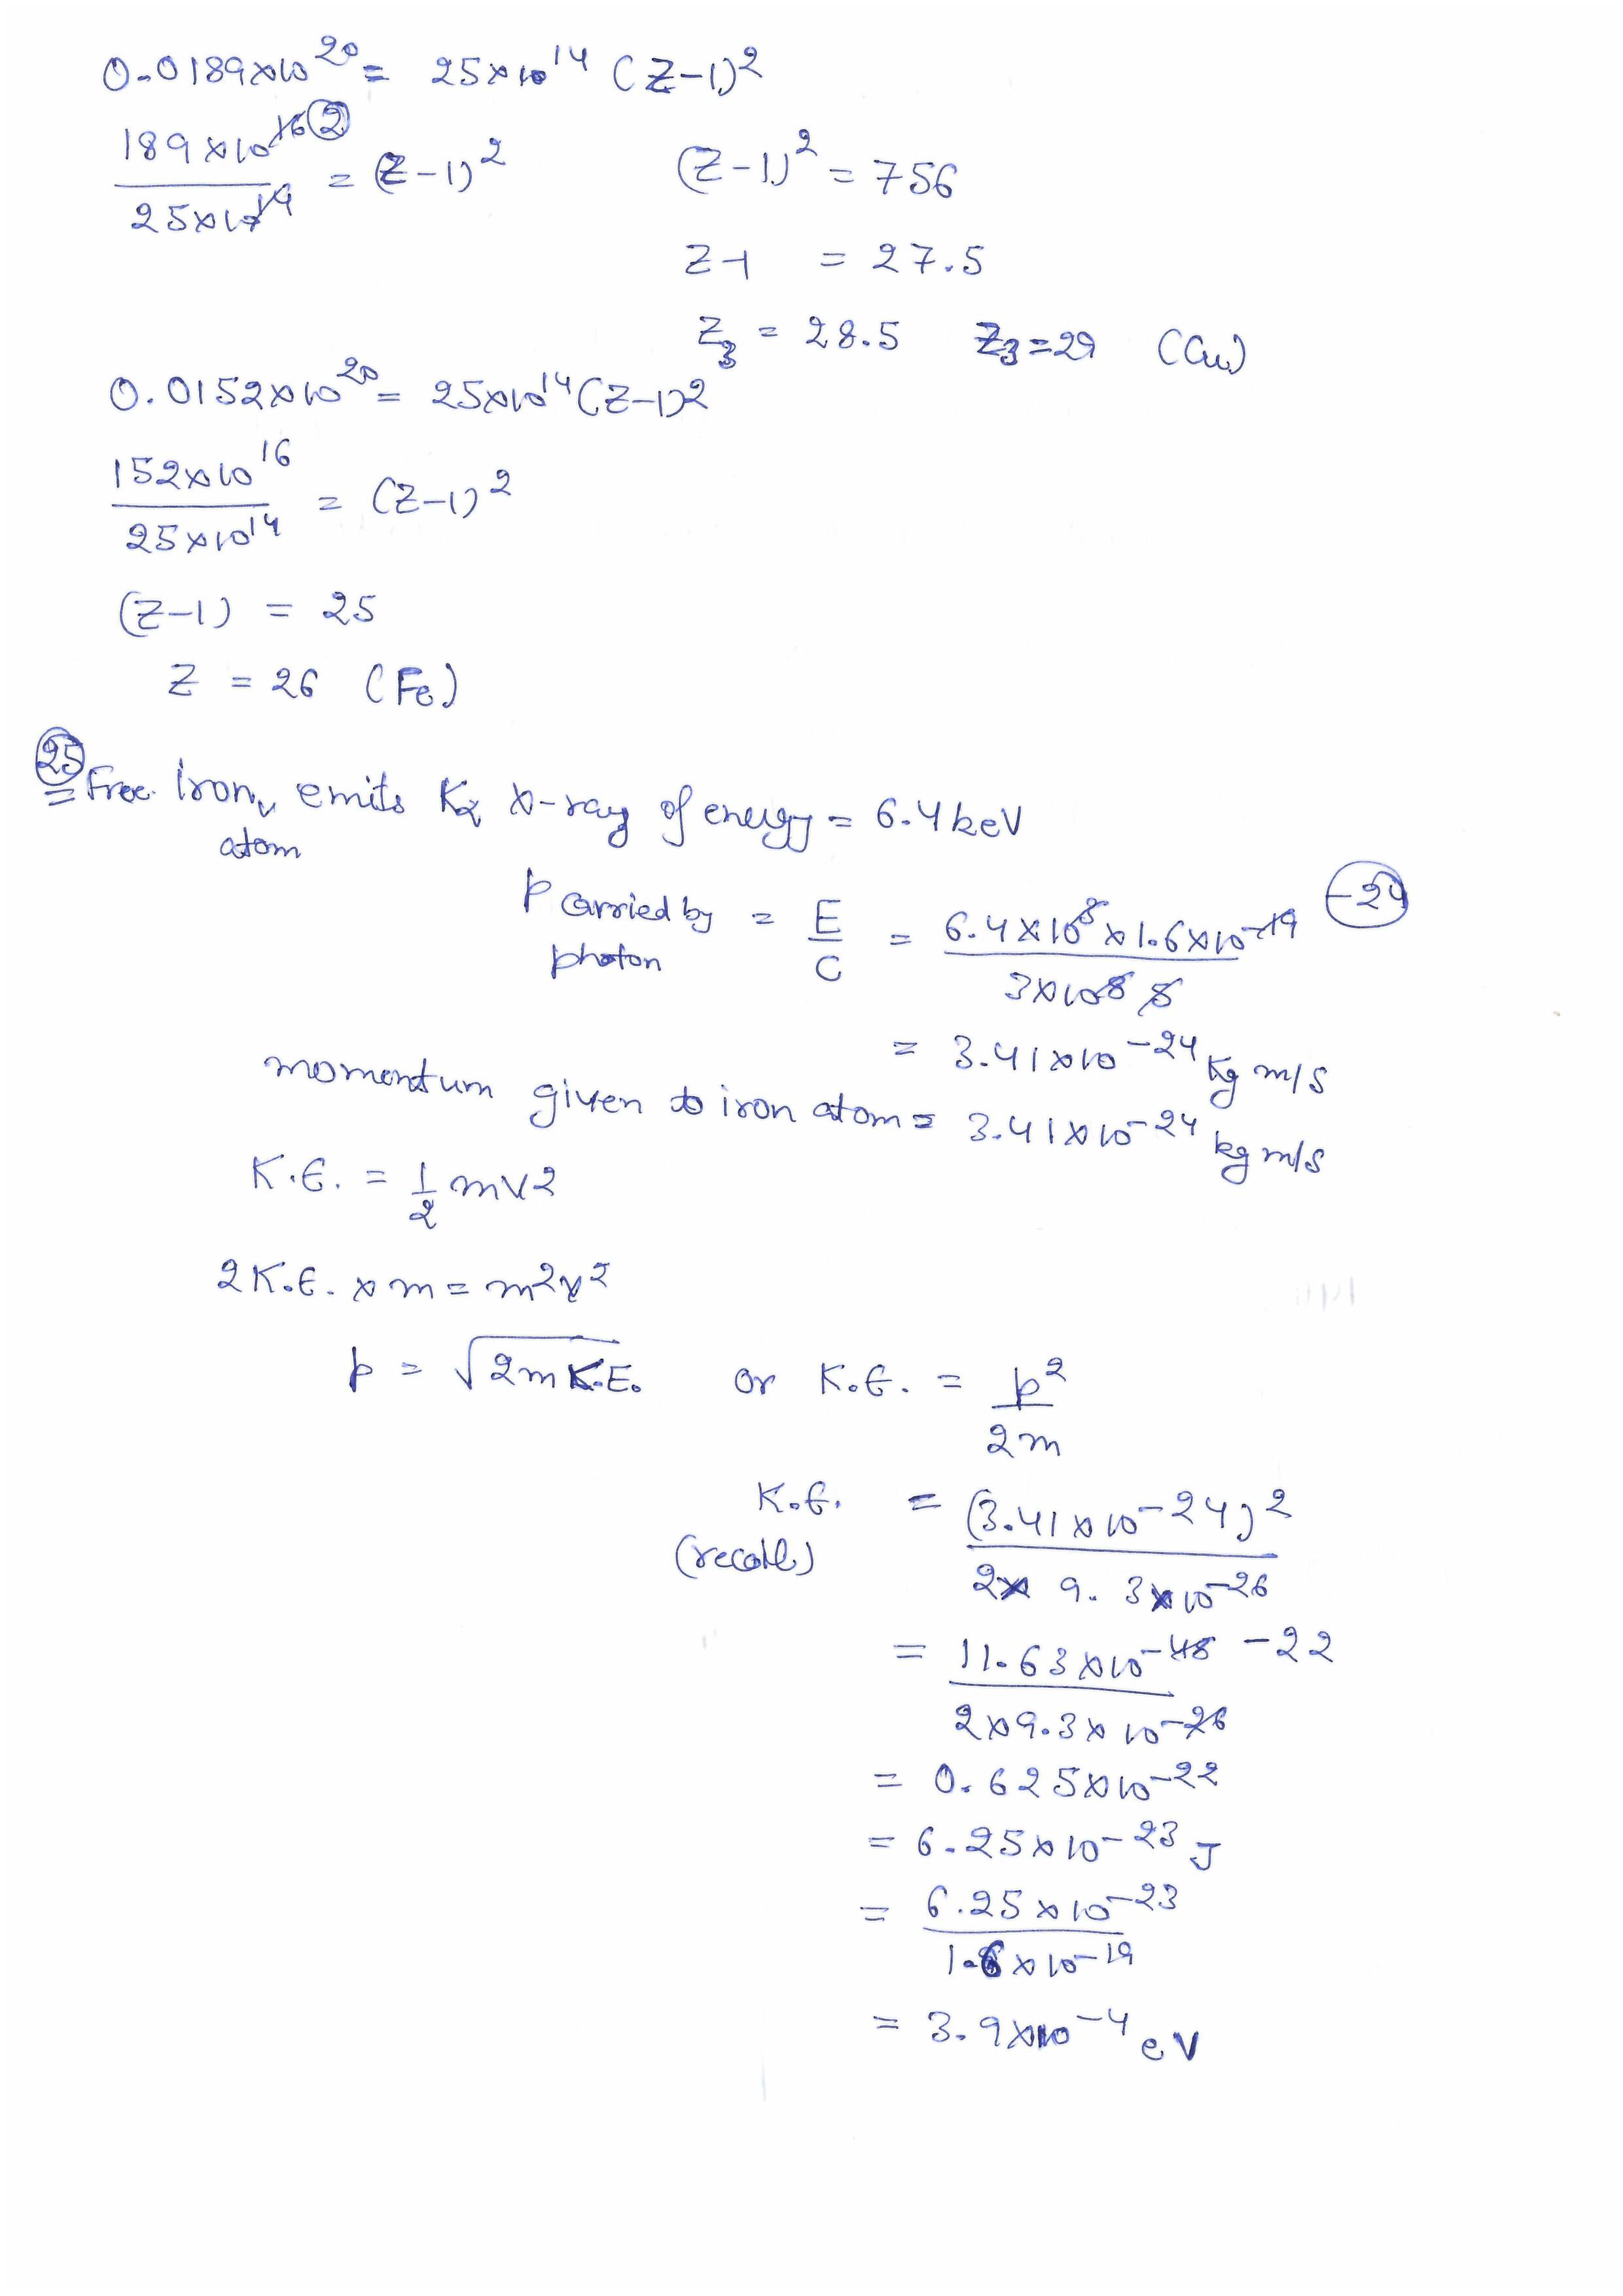 0.0189×10^20 = 25×10^14 (Z-1)^2
189×10^16 (2) / 25×10^14 = (Z-1)^2
(Z-1)^2 = 756
Z-1 = 27.5
Z3 = 28.5 Z3=29 (Cu)
0.0152×10^20 = 25×10^14 (Z-1)^2
152×10^16 / 25×10^14 = (Z-1)^2
(Z-1) = 25
Z = 26 (Fe)
(25) Free Iron atom emits Kα X-ray of energy = 6.4 keV
p carried by photon = E/C = 6.4×10^3×1.6×10^-19 / 3×10^8 (-24)
= 3.41×10^-24 kg m/s
momentum given to iron atom = 3.41×10^-24 kg m/s
K.E. = 1/2 mv2
2K.E. × m = m2v2
p = √2m K.E. or K.E. = p^2/2m
K.E. (recoil) = (3.41×10^-24)^2 / 2× 9.3×10^-26
= 11.63×10^-48 -22 / 2×9.3×10^-26
= 0.625×10^-22
= 6.25×10^-23 J
= 6.25×10^-23 / 1.6×10^-19
= 3.9×10^-4 eV